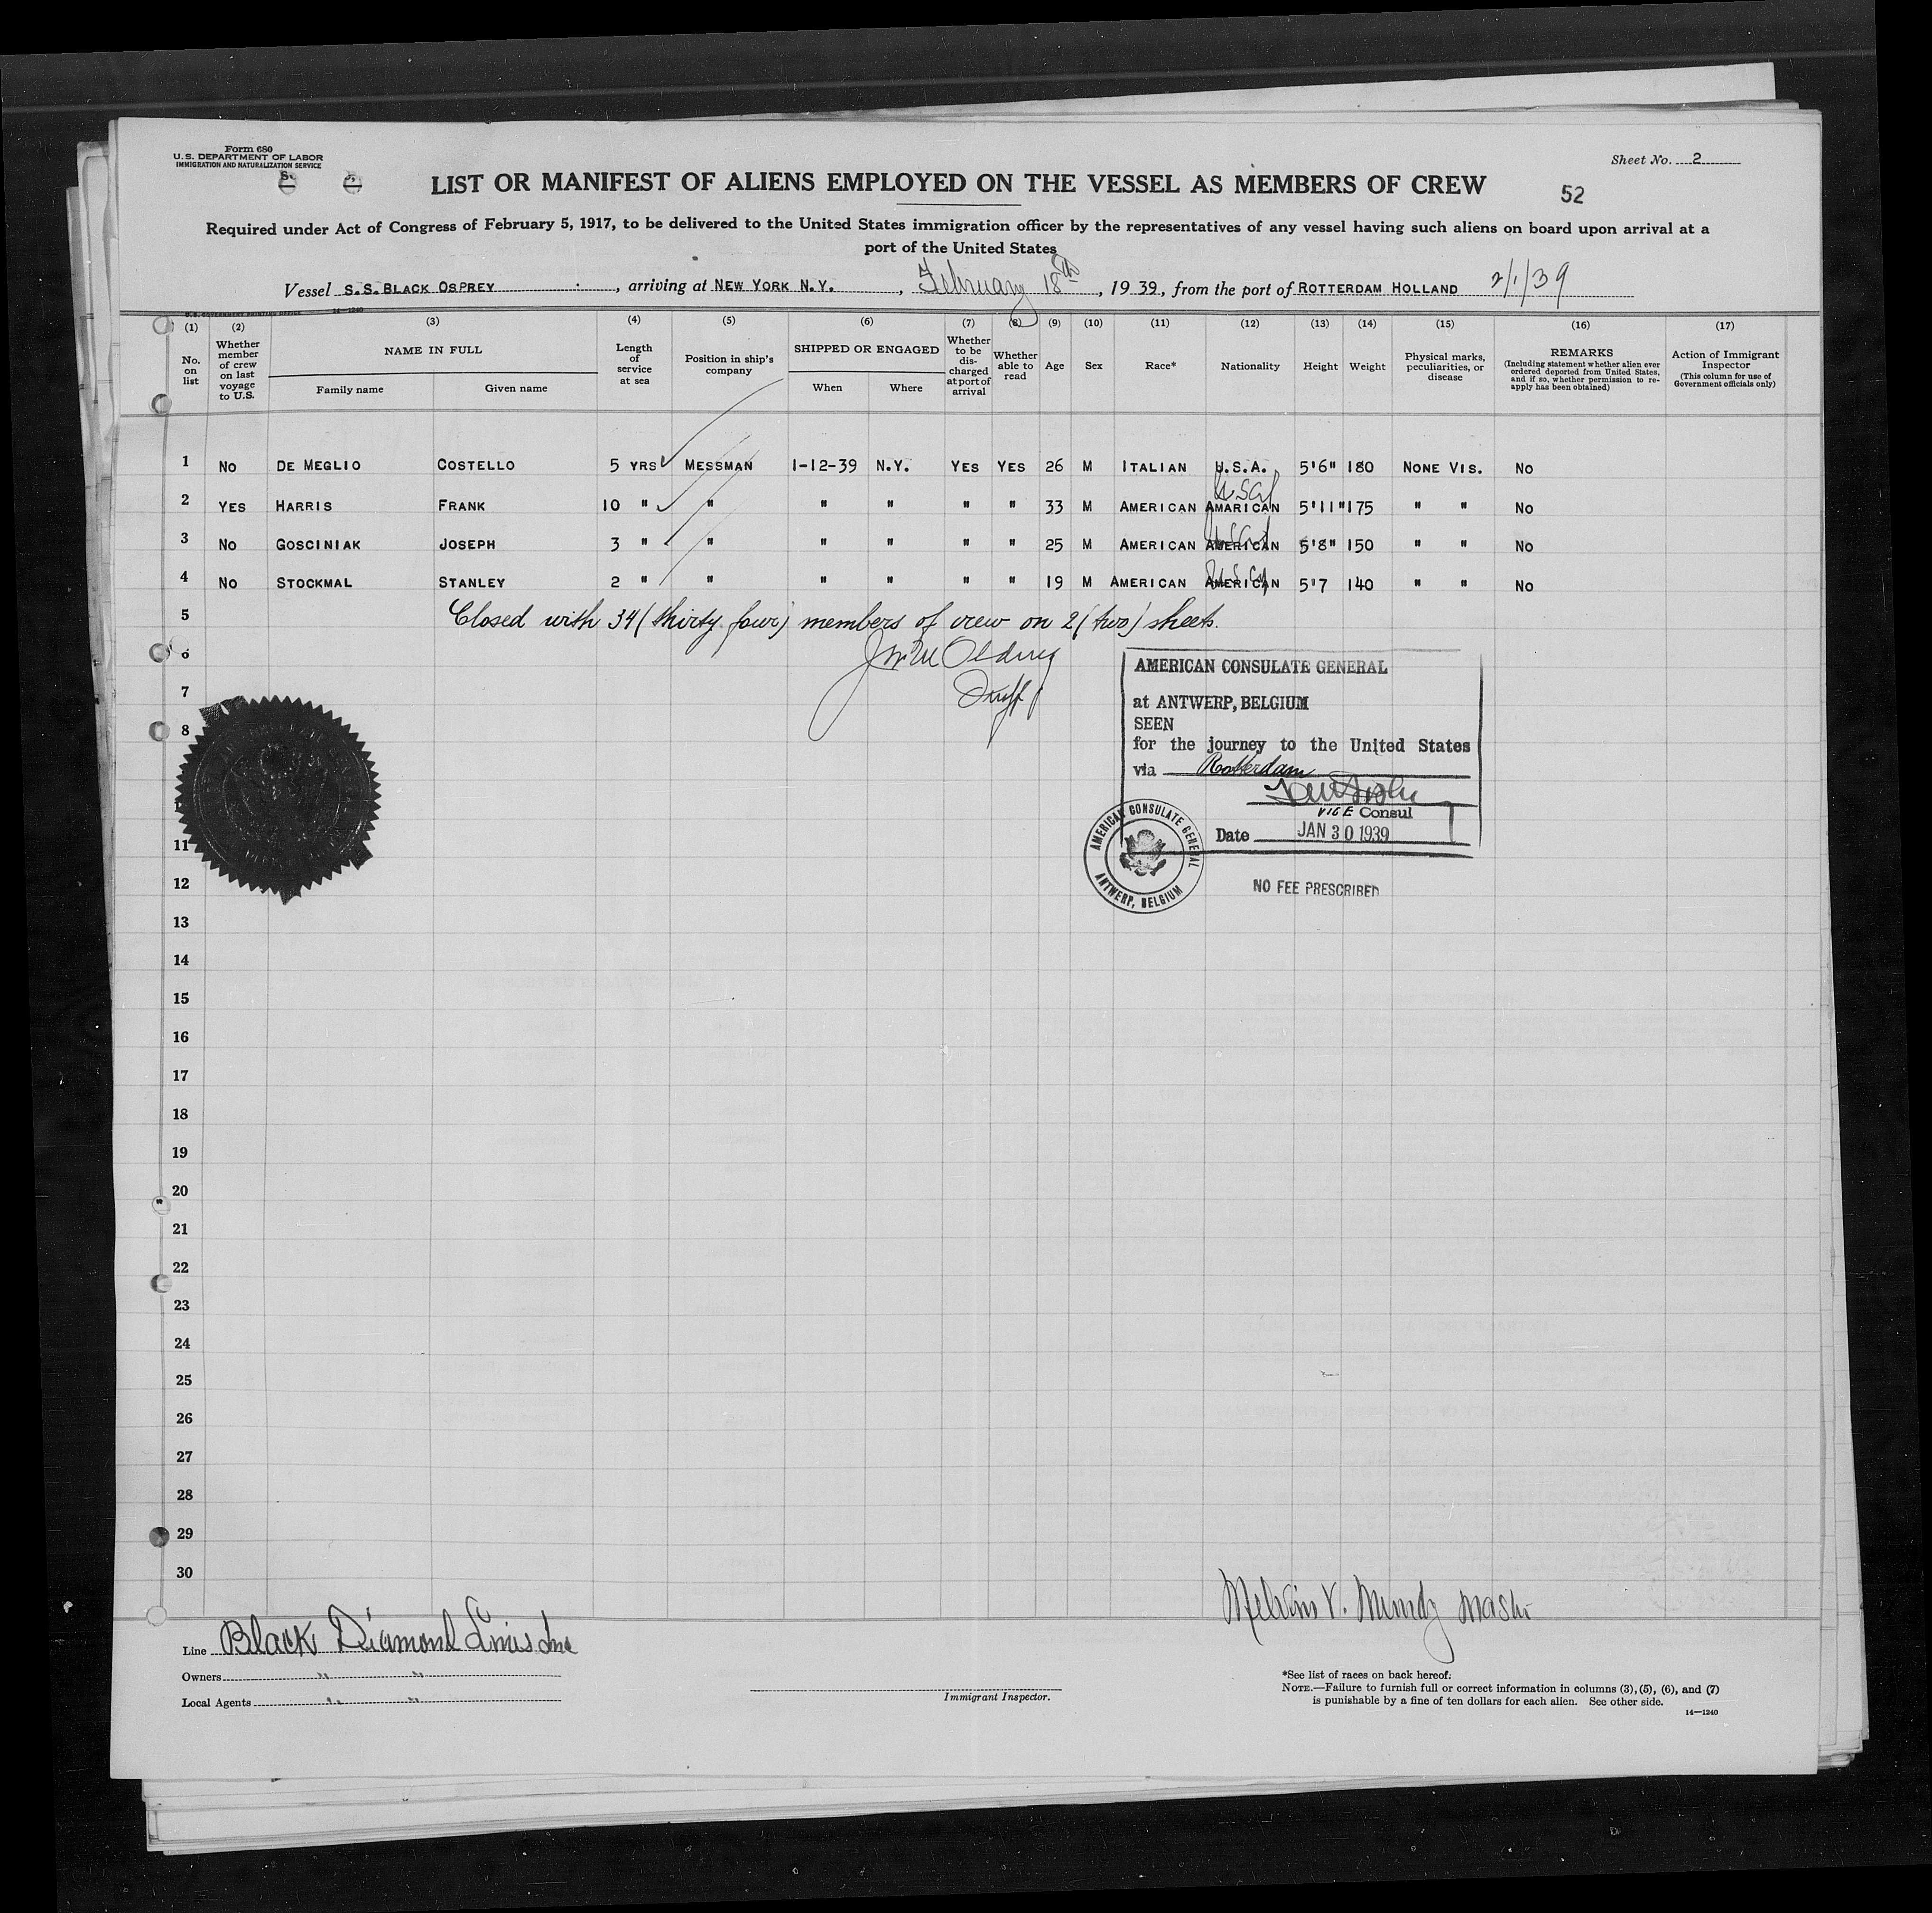 Form 680
U. S. DEPARTMENT OF LABOR
IMMIGRATION AND NATURALIZATION SERVICE
Sheet No. 2
LIST OR MANIFEST OF ALIENS EMPLOYED ON THE VESSEL AS MEMBERS OF CREW
52
Required under Act of Congress of February 5, 1917, to be delivered to the United States immigration officer by the representatives of any vessel having such aliens on board upon arrival at a
port of the United States
Vessel S.S. BLACK OSPREY, arriving at NEW YORK N.Y., February 18th, 1939, from the port of ROTTERDAM HOLLAND 2/1/39
(1) (2) (3) (4) (5) (6) (7) (8) (9) (10) (11) (12) (13) (14) (15) (16) (17)
No. on list
Whether member of crew on last voyage to U.S.
NAME IN FULL
Family name
Given name
Length of service at sea
Position in ship's company
SHIPPED OR ENGAGED
When
Where
Whether to be discharged at port of arrival
Whether able to read
Age
Sex
Race*
Nationality
Height
Weight
Physical marks, peculiarities, or disease
REMARKS
(Including statement whether alien ever ordered deported from United States, and if so, whether permission to reapply has been obtained)
Action of Immigrant Inspector
(This column for use of Government officials only)
1 NO DE MEGLIO COSTELLO 5 YRS MESSMAN 1-12-39 N.Y. YES YES 26 M ITALIAN U.S.A. 5'6" 180 NONE VIS. NO
2 YES HARRIS FRANK 10 " " " " " " 33 M AMERICAN AMARICAN 5'11" 175 " " NO
3 NO GOSCINIAK JOSEPH 3 " " " " " " 25 M AMERICAN AMERICAN 5'8" 150 " " NO
4 NO STOCKMAL STANLEY 2 " " " " " " 19 M AMERICAN AMERICAN 5'7 140 " " NO
5 Closed with 34 (thirty four) members of crew on 2 (two) sheets.
6
7
8
11
12
13
14
15
16
17
18
19
20
21
22
23
24
25
26
27
28
29
30
AMERICAN CONSULATE GENERAL
at ANTWERP, BELGIUM
SEEN
for the journey to the United States
via Rotterdam
VICE Consul
Date JAN 30 1939
AMERICAN CONSULATE GENERAL
ANTWERP, BELGIUM
NO FEE PRESCRIBED
Melvin V. Mundy
Line Black Diamond Lines Inc
Owners " "
Local Agents " "
Immigrant Inspector.
*See list of races on back hereof.
NOTE.—Failure to furnish full or correct information in columns (3), (5), (6), and (7)
is punishable by a fine of ten dollars for each alien. See other side.
14—1240